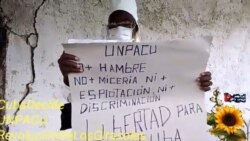 UNPACU
+ HAMBRE
NO + MICERIA NI +
ESPLOTACIÓN NI +
DISCRIMINACIÓN
LIBERTAD PARA
CUBA
CubaDecide
UNPACU